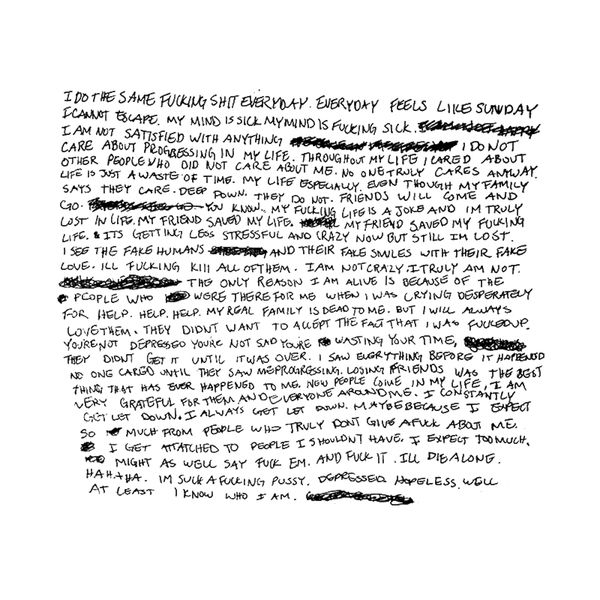 I DO THE SAME FUCKING SHIT EVERYDAY. EVERYDAY FEELS LIKE SUNDAY
I CANNOT ESCAPE. MY MIND IS SICK MY MIND IS FUCKING SICK.
I AM NOT SATISFIED WITH ANYTHING I DO NOT
CARE ABOUT PROGRESSING IN MY LIFE. THROUGHOUT MY LIFE I CARED ABOUT
OTHER PEOPLE WHO DID NOT CARE ABOUT ME. NO ONE TRULY CARES ANYWAY.
LIFE IS JUST A WASTE OF TIME. MY LIFE ESPECIALLY. EVEN THOUGH MY FAMILY
SAYS THEY CARE. DEEP DOWN. THEY DO NOT. FRIENDS WILL COME AND
GO. YOU KNOW. MY FUCKING LIFE IS A JOKE AND IM TRULY
LOST IN LIFE. MY FRIEND SAVED MY LIFE. MY FRIEND SAVED MY FUCKING
LIFE. & ITS GETTING LESS STRESSFUL AND CRAZY NOW BUT STILL IM LOST.
I SEE THE FAKE HUMANS AND THEIR FAKE SMILES WITH THEIR FAKE
LOVE. ILL FUCKING KILL ALL OF THEM. I AM NOT CRAZY I TRULY AM NOT.
THE ONLY REASON I AM ALIVE IS BECAUSE OF THE
PEOPLE WHO WERE THERE FOR ME WHEN I WAS CRYING DESPERATELY
FOR HELP. HELP. HELP. MY REAL FAMILY IS DEAD TO ME. BUT I WILL ALWAYS
LOVE THEM. THEY DIDNT WANT TO ACCEPT THE FACT THAT I WAS FUCKED UP.
YOURE NOT DEPRESSED YOURE NOT SAD YOURE WASTING YOUR TIME,
THEY DIDNT GET IT UNTIL IT WAS OVER. I SAW EVERYTHING BEFORE IT HAPPENED
NO ONE CARED UNTIL THEY SAW ME PROGRESSING. LOSING FRIENDS WAS THE BEST
THING THAT HAS EVER HAPPENED TO ME. NEW PEOPLE COME IN MY LIFE, I AM
VERY GRATEFUL FOR THEM AND EVERYONE AROUND ME. I CONSTANTLY
GET LET DOWN. I ALWAYS GET LET DOWN. MAYBE BECAUSE I EXPECT
SO MUCH FROM PEOPLE WHO TRULY DONT GIVE A FUCK ABOUT ME.
I GET ATTATCHED TO PEOPLE I SHOULDN'T HAVE. I EXPECT TOO MUCH.
MIGHT AS WELL SAY FUCK EM. AND FUCK IT. ILL DIE ALONE.
HAHAHA. IM SUCH A FUCKING PUSSY. DEPRESSED. HOPELESS. WELL
AT LEAST I KNOW WHO I AM.